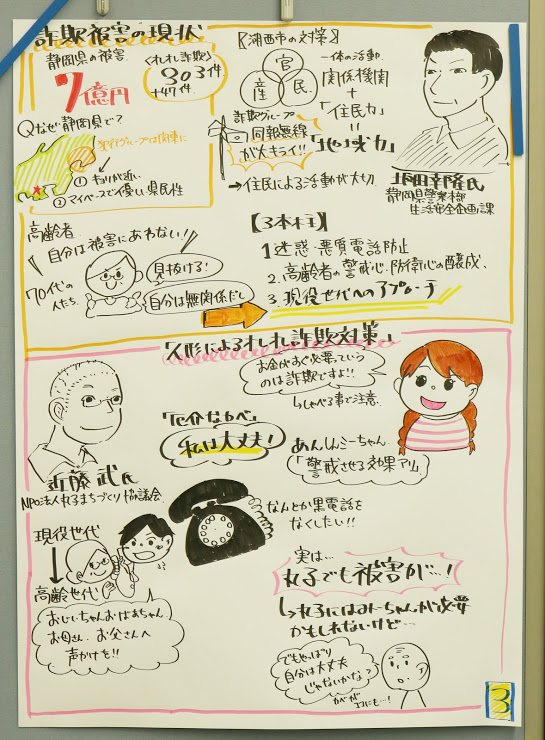 詐欺被害の現状
静岡県の被害
7億円
〈オレオレ詐欺〉
303件
+47件
Qなぜ静岡県で?
犯行グループは関東に
① キョリが近い
② マイペースで優しい県民性
【湖西市の対策】
官
産
民
一体の活動
関係機関
+
「住民力」
=
「地域力」
詐欺グループ
同報無線
が大キライ!!
→住民による活動が大切
幸隆氏
静岡県警察本部
生活安全企画課
高齢者
自分は被害にあわない!!
70代の
人たち
見抜ける!
自分は無関係だし
【3本柱】
1 迷惑・悪質電話防止
2. 高齢者の警戒心・防衛心の醸成、
3. 現役世代へのアプローチ
人形によるオレオレ詐欺対策
お金がすぐ必要っていう
のは詐欺ですよ!!
↳しゃべる事で注意、
あんしんミーちゃん
「警戒させる効果アリ」
「厄介なかべ」
私は大丈夫!
近藤 武氏
NPO法人丸子まちづくり協議会
なんとか黒電話を
なくしたい!!
現役世代
↓
高齢世代
おじいちゃんおばあちゃん、
お母さん、お父さんへ
声かけを!!
実は…
丸子でも被害が…!
↳丸子にはみーちゃんが必要
かもしれないけど…
でもやっぱり
自分は大丈夫
じゃないかな?
かべが
ココにも…!
3